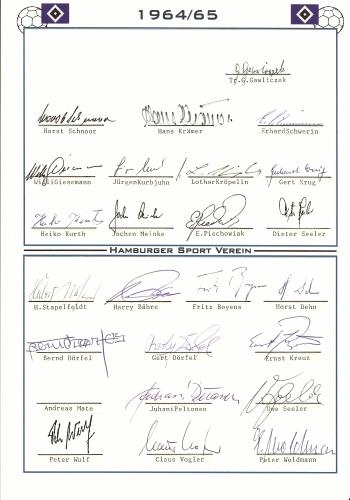 1964/65
Tr.G.Gawliczek
Horst Schnoor Hans Krämer ErhardSchwerin
WilliGiesemann JürgenKurbjuhn LotharKröpelin Gert Krug
Heiko Kurth Jochen Meinke E.Piechowiak Dieter Seeler
Hamburger Sport Verein
H.Stapelfeldt Harry Bähre Fritz Boyens Horst Dehn
Bernd Dörfel Gert Dörfel Ernst Kreuz
Andreas Mate JuhaniPeltonen Uwe Seeler
Peter Wulf Claus Vogler Peter Woldmann